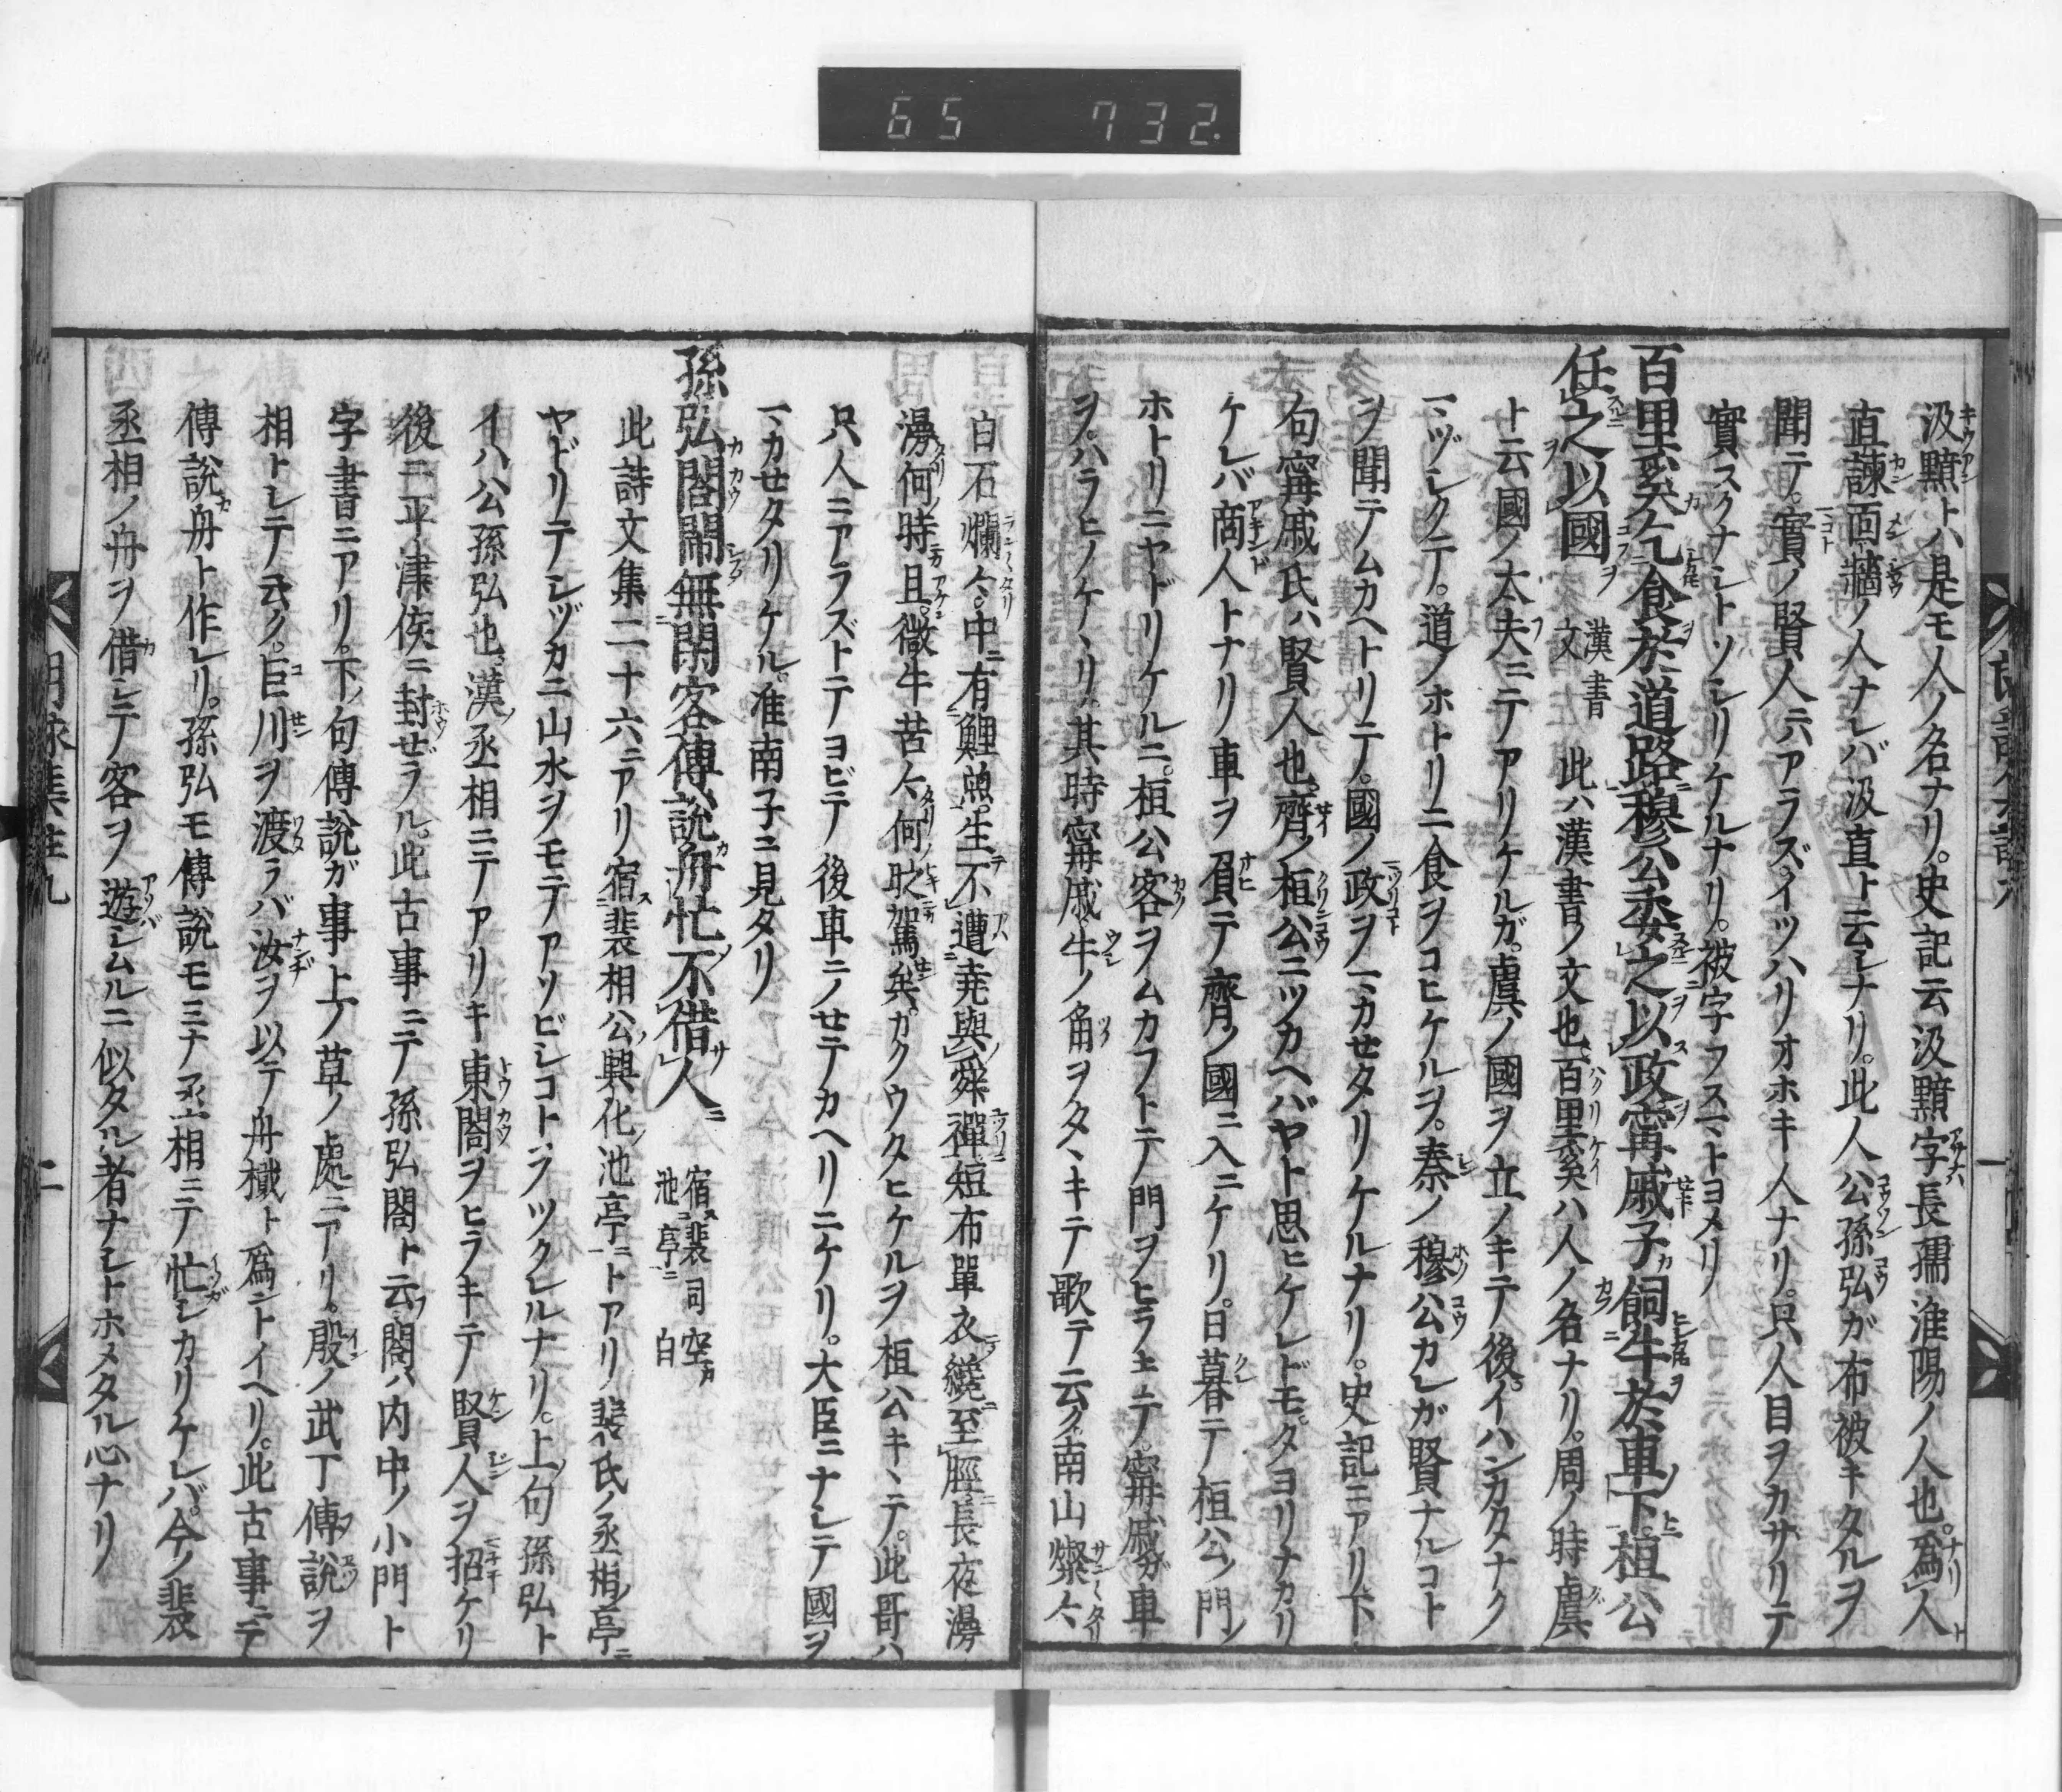 65 732.
汲黯トハ是モ人ノ名ナリ。史記云汲黯字長孺淮陽ノ人也。爲人
直諫面牆ノ人ナレバ汲直ト云シナリ。此人公孫弘ガ布被キタルヲ
聞テ。實ノ賢人ニハアラズ。イツハリオホキ人ナリ。只人目ヲカザリテ
實スクナシトソシリケルナリ。被字フスマトヨメリ
百里奚乞食於道路穆公委之以政甯戚子飼牛於車下桓公
任之以國 漢書文 此ハ漢書ノ文也。百里奚ハ人ノ名ナリ。周ノ時虞
ト云國ノ太夫ニテアリケルガ。虞ノ國ヲ立ノキテ後。イハンカタナク
マヅシクテ。道ノホトリニ食ヲコヒケルヲ。秦ノ穆公カレガ賢ナルコト
ヲ聞テムカヘトリテ。國ノ政ヲマカセタリケルナリ。史記ニアリ下
句甯戚氏ハ賢人也。齊ノ桓公ニツカヘバヤト思ヒケレドモ。タヨリナカリ
ケレバ商人トナリ車ヲ負テ齊ノ國ニ入ニケリ。日暮テ桓公ノ門ノ
ホトリニヤドリケルニ。桓公客ヲムカフトテ門ヲヒラキテ。甯戚ガ車
ヲ。ハラヒノケヽリ。其時甯戚牛ノ角ヲタヽキテ歌テ云ク。南山燦々
白石爛々。中有鯉魚。生不遭堯與舜禪。短布單衣纔至脛。長夜漫
漫何時旦。微牛苦々何敢駕矣。カクウタヒケルヲ桓公キヽテ。此哥ハ
只人ニアラズトテヨビテ後車ニノセテカヘリニケリ。大臣ニナシテ國ヲ
マカセタリケル。淮南子ニ見タリ
孫弘閤閙無閑客傳說舟忙不借人 宿裴司空池亭 白
此詩文集二十六ニアリ宿裴相公興化池亭ニトアリ裴氏ノ丞相ノ亭ニ
ヤドリテシヅカニ山水ヲモテアソビシコトヲツクレルナリ。上句孫弘ト
イハ公孫弘也。漢ノ丞相ニテアリキ東閤ヲヒラキテ賢人ヲ招ケリ
後ニ平津侯ニ封ゼラル。此古事ニテ孫弘閤ト云フ。閤ハ内中ノ小門ト
字書ニアリ。下ノ句傳說ガ事上ノ草ノ處ニアリ。殷ノ武丁傳說ヲ
相トシテ云ク。巨川ヲ渡ラバ汝ヲ以テ舟檝ト爲ントイヘリ。此古事ニテ
傳說舟ト作レリ。孫弘モ傳說モミナ丞相ニテ忙シカリケレバ。今ノ裴
丞相ノ舟ヲ借シテ客ヲ遊シムルニ似タル者ナシトホメタル心ナリ